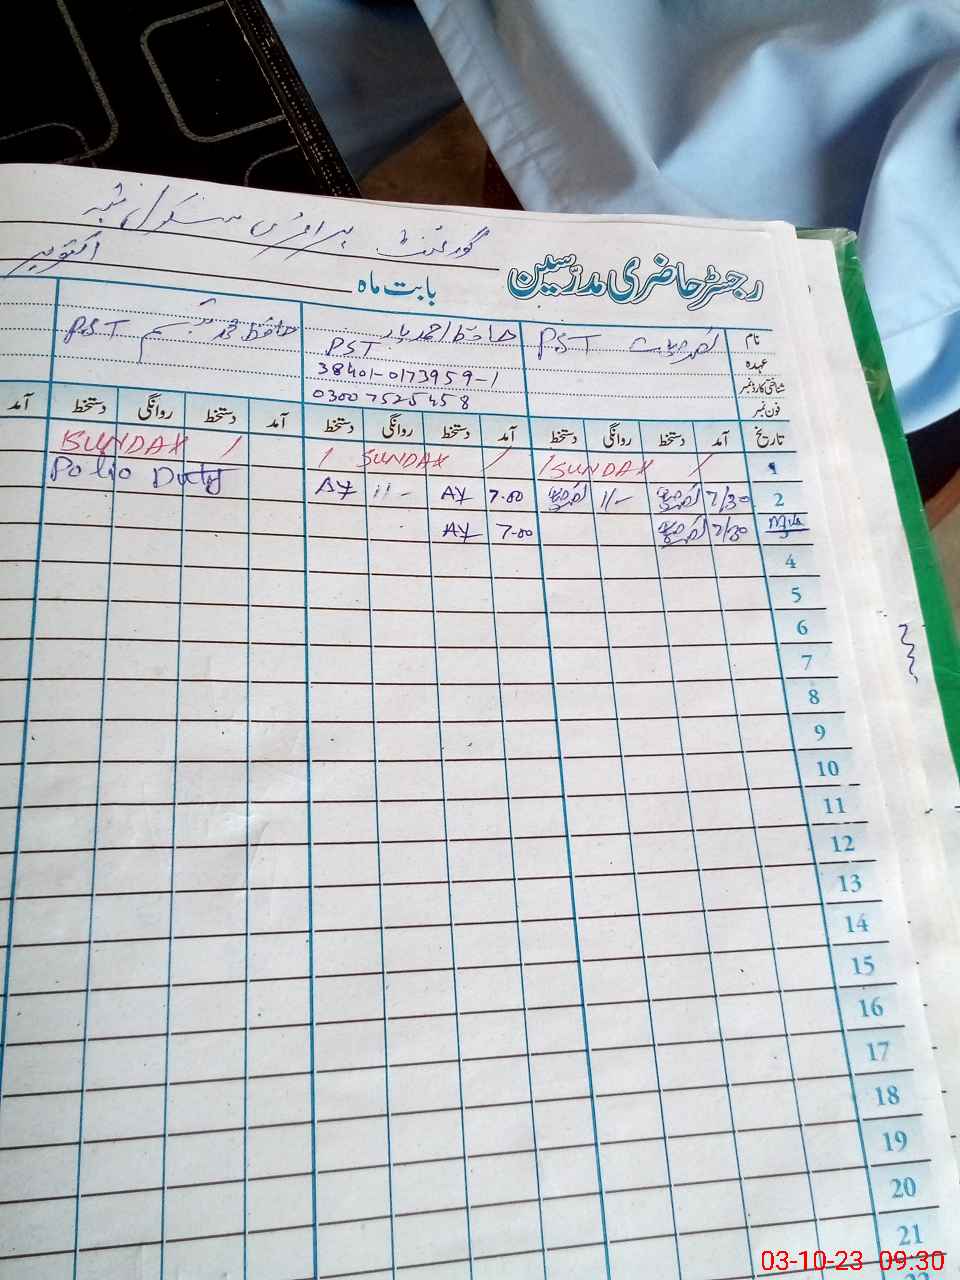 گورنمنٹ پرائمری سکول
رجسٹر حاضری مدرسین
بابت ماہ اکتوبر
نام
عہدہ
شناختی کارڈ نمبر
فون نمبر
PST
حافظ احمد یار
PST
38401-0173959-1
03007525458
حافظ محمد PST
تاریخ آمد دستخط روانگی دستخط آمد دستخط روانگی دستخط آمد دستخط روانگی دستخط آمد
1 SUNDAY SUNDAY SUNDAY
2 7/30 11/- 7.00 AY 11/- AY Polio Duty
7/30 7.00 AY
4
5
6
7
8
9
10
11
12
13
14
15
16
17
18
19
20
21
22
03-10-23 09:30